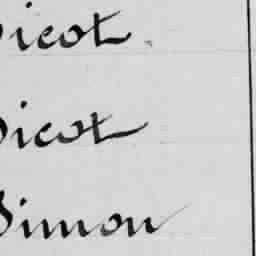 Picot
Picot
Simon